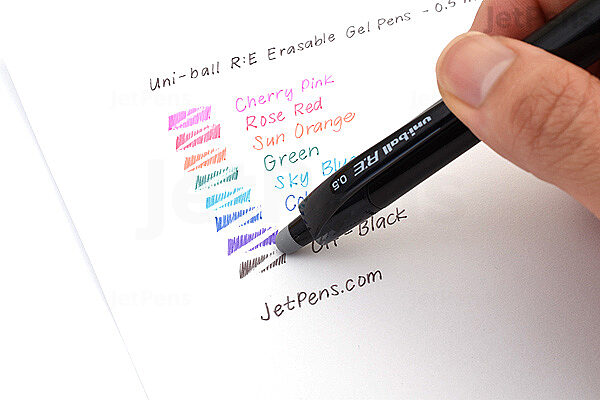 Uni-ball R:E Erasable Gel Pens - 0.5 m
Cherry Pink
Rose Red
Sun Orange
Green
Sky Blu
Co
Off-Black
JetPens.com
uni-ball R:E 0.5
JetPens
JetPens
JetPens
JetPens
JetPens